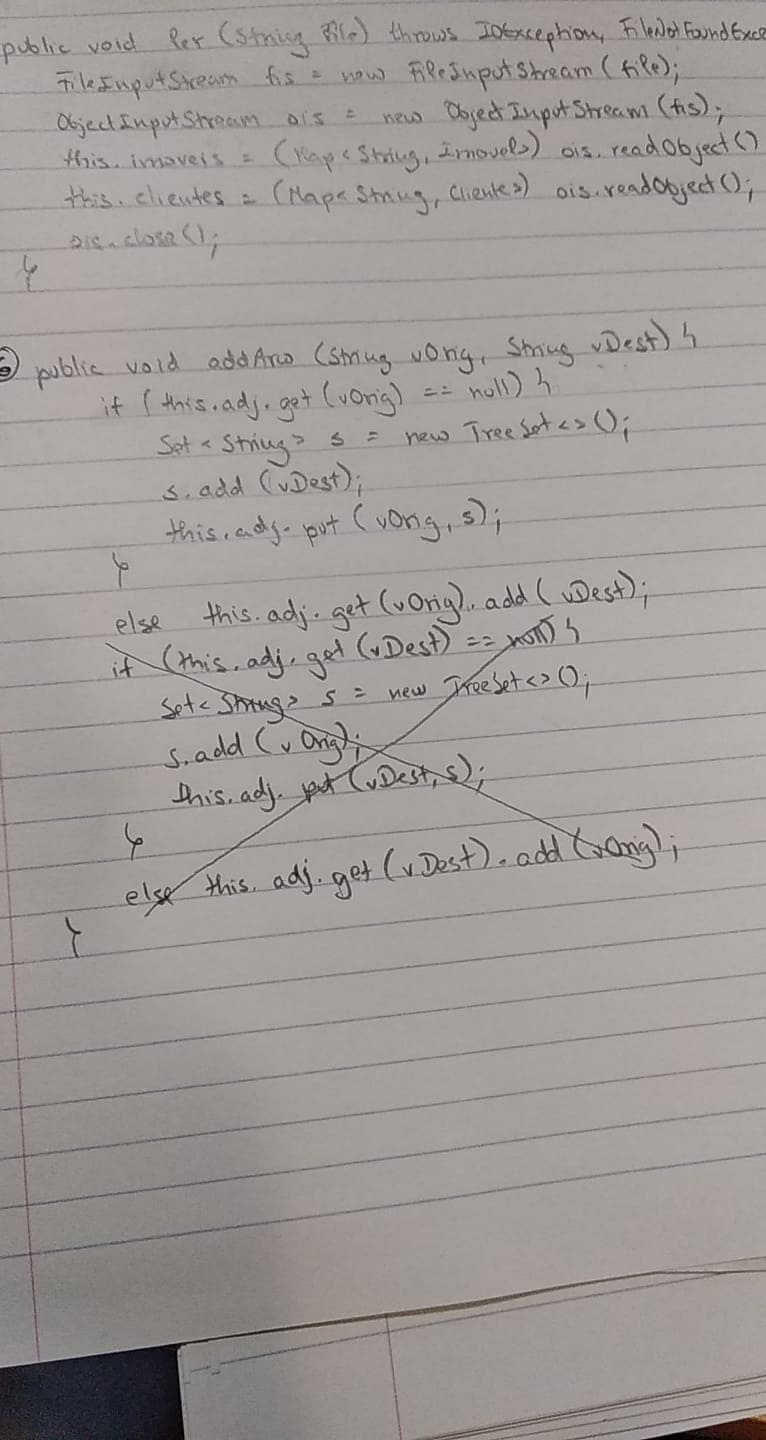 public void ler (String file) throws IOException, FileNotFoundExce
FileInputStream fis = new FileInputStream (file);
ObjectInputStream ois = new ObjectInputStream (fis);
this.imoveis = (Map<String, Imovel>) ois.readObject()
this.clientes = (Map<String, Cliente>) ois.readObject();
ois.close();
}
6 public void addArco (String vOrig, String vDest) {
if (this.adj.get(vOrig) == null) {
Set<String> s = new TreeSet<>();
s.add (vDest);
this.adj.put (vOrig, s);
}
else this.adj.get(vOrig).add(vDest);
if (this.adj.get(vDest) == null) {
Set<String> s = new TreeSet<>();
s.add (vOrig);
this.adj.put (vDest, s);
}
else this.adj.get(vDest).add(vOrig);
}